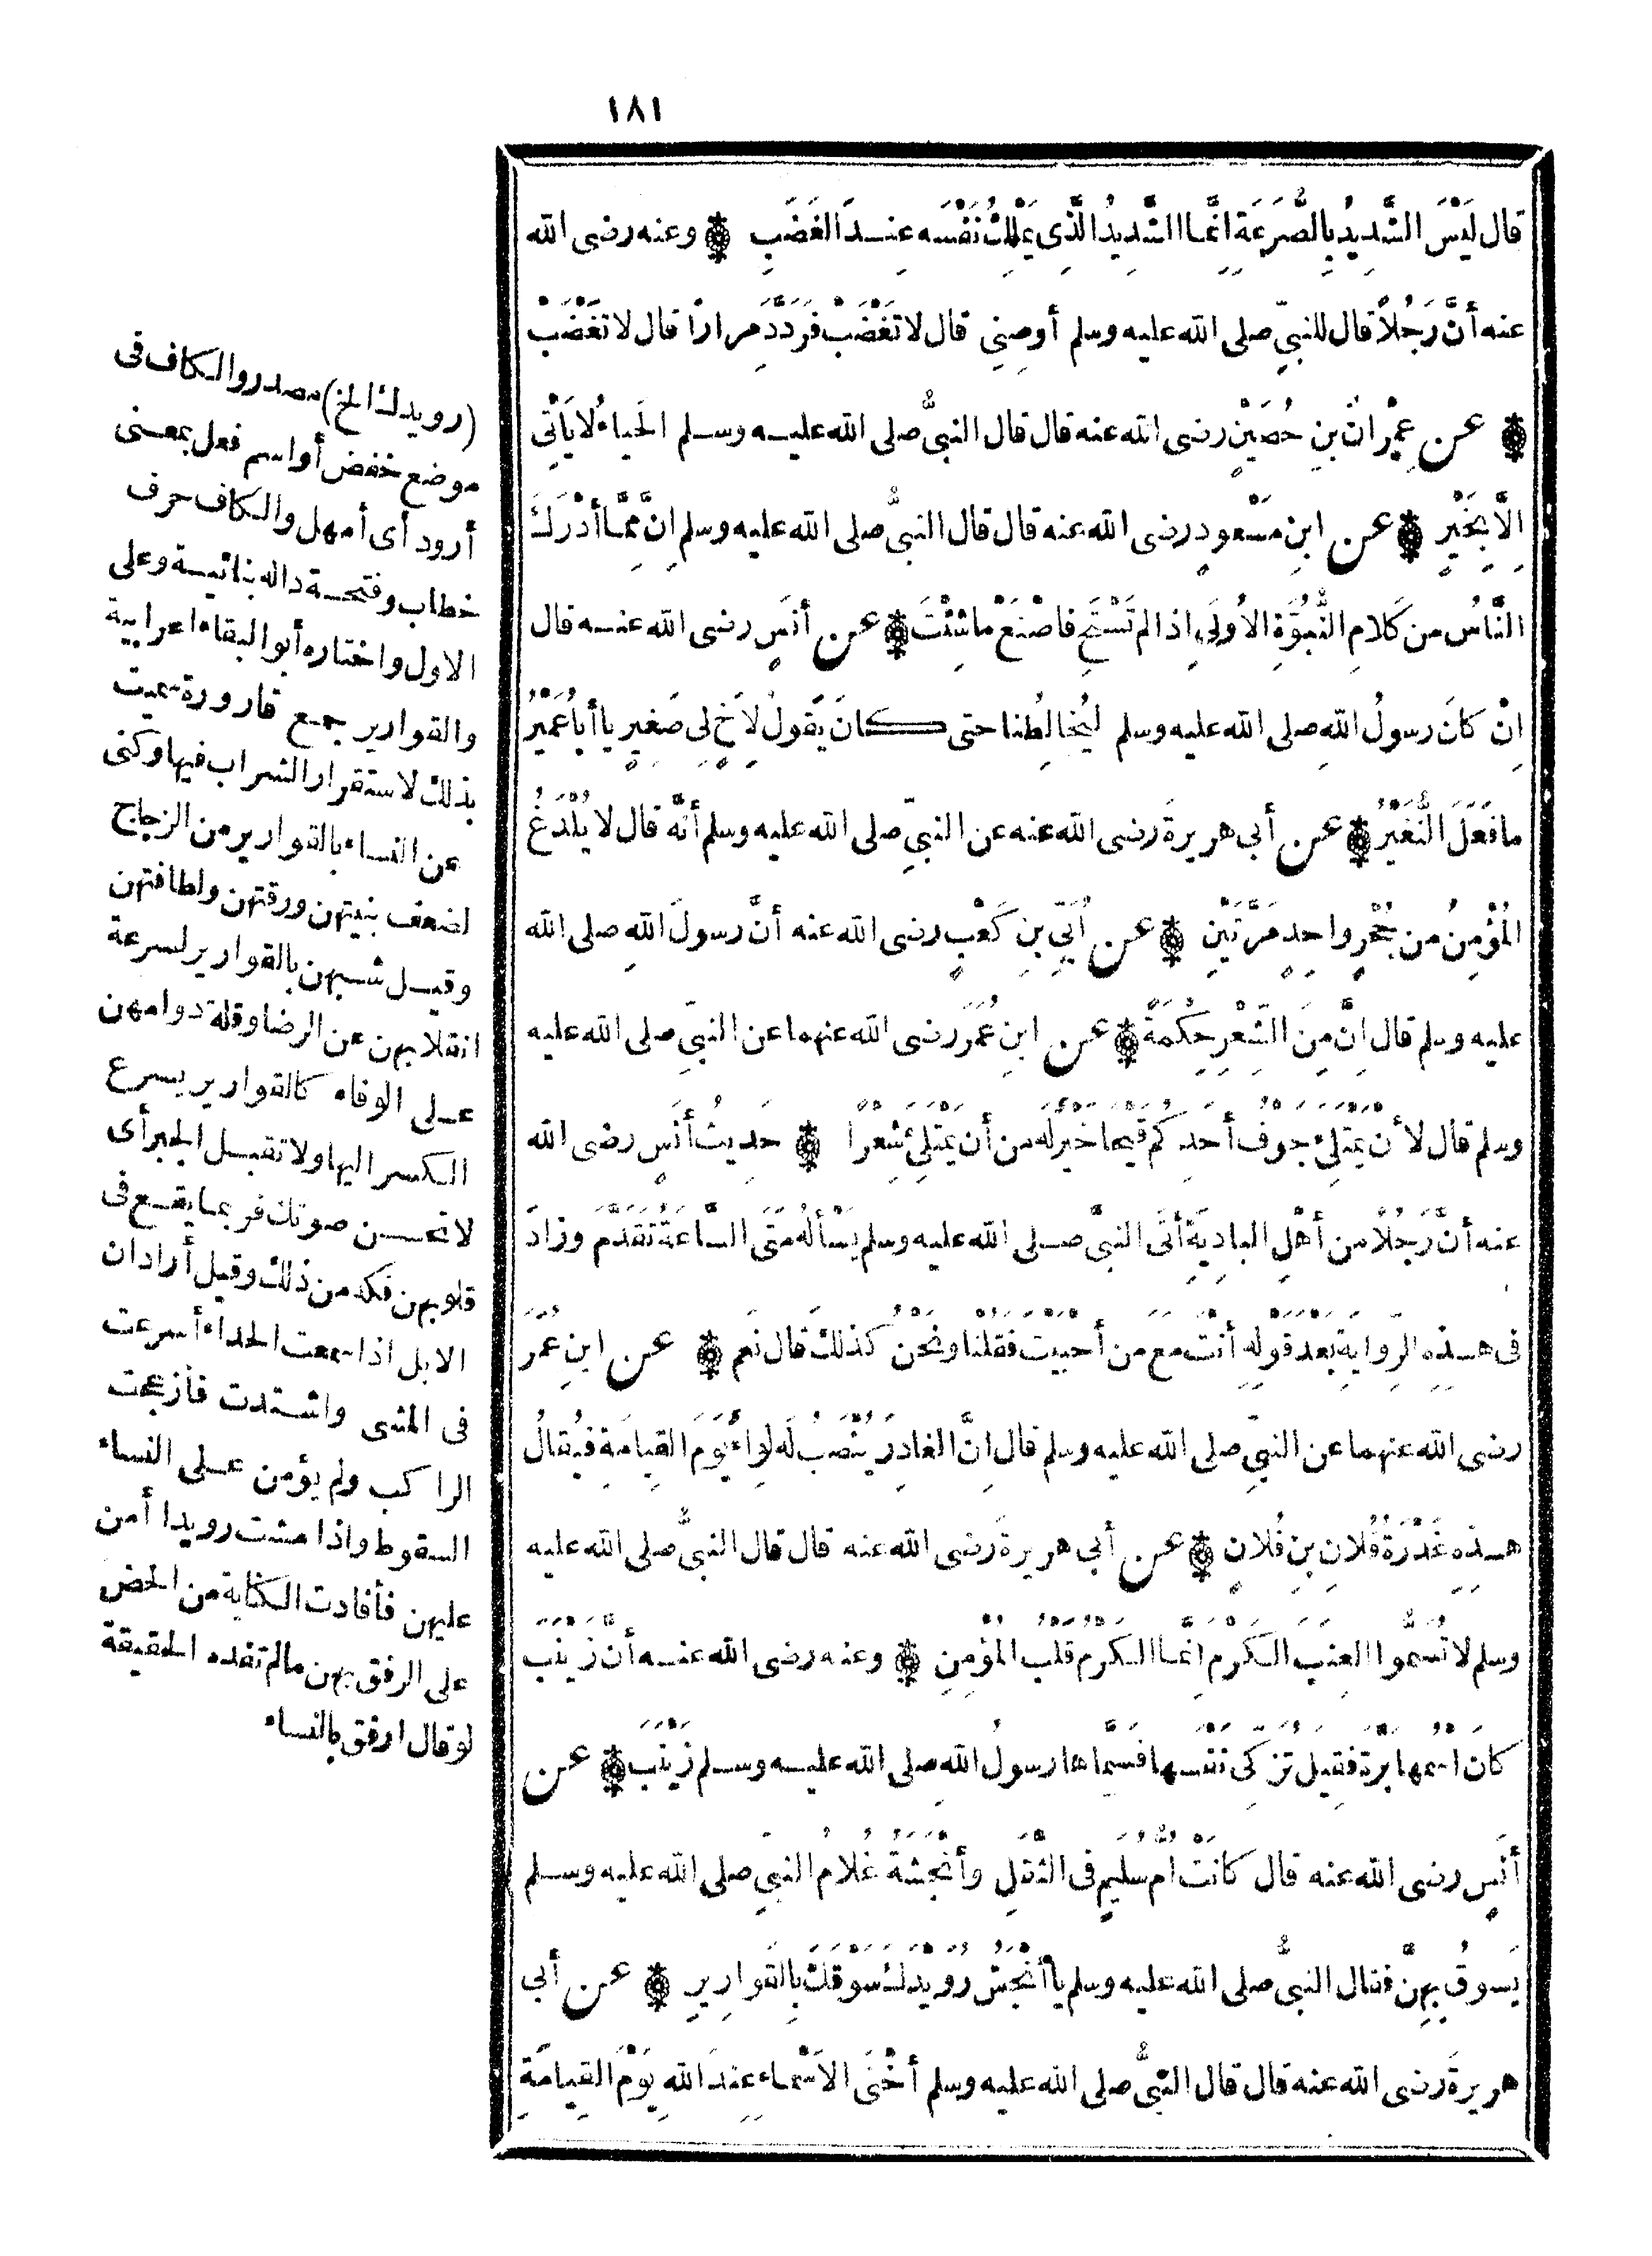 ١٨١
قال لَيْسَ الشَّدِيدُ بِالصُّرَعَةِ اِنَّمَا الشَّدِيدُ الَّذِى يَمْلِكُ نَفْسَه عِنْدَ الغَضَبِ ۞ وعنه رضى الله
عنه أنَّ رَجُلاً قال للنبىِّ صلى الله عليه وسلم أوصِنِى قال لا تَغْضَبْ فرَدَّدَ مِرارًا قال لا تَغْضَبْ
۞ عن عِمْرانَ بنِ حُصَيْنٍ رضى الله عنه قال قال النبىُّ صلى الله عليه وسلم الحَياءُ لا يَأْتِى
اِلَّا بِخَيْرٍ ۞ عن ابنِ مَسْعودٍ رضى الله عنه قال قال النبىُّ صلى الله عليه وسلم اِنَّ مِمَّا أدْرَكَ
النَّاسُ من كَلامِ النُّبُوَّةِ الاُولَى اِذا لم تَسْتَحِ فاصْنَعْ ما شِئْتَ ۞ عن أنَسٍ رضى الله عنه قال
اِنْ كانَ رسولُ اللهِ صلى الله عليه وسلم لَيُخالِطُنا حتى كانَ يَقولُ لِاَخٍ لِى صَغِيرٍ يا أبا عُمَيْرُ
ما فَعَلَ النُّغَيْرُ ۞ عن أبى هريرةَ رضى الله عنه عن النبىِّ صلى الله عليه وسلم أنَّه قال لا يُلْدَغُ
المُؤْمِنُ من جُحْرٍ واحِدٍ مَرَّتَيْنِ ۞ عن اُبَىِّ بنِ كَعْبٍ رضى الله عنه أنَّ رسولَ اللهِ صلى الله
عليه وسلم قال اِنَّ مِنَ الشِّعْرِ حِكْمَةً ۞ عن ابنِ عُمَرَ رضى الله عنهما عن النبىِّ صلى الله عليه
وسلم قال لأَن يَمْتَلِئَ جَوفُ أحَدِكُم قَيْحا خَيْرٌ لَه من أن يَمْتَلِئَ شِعْرًا ۞ حَدِيثُ أنَسٍ رضى الله
عنه أنَّ رَجُلاً من أهْلِ البادِيَةِ أتَى النبىَّ صلى الله عليه وسلم يَسْألُه مَتَى السَّاعَةُ تَقَدَّمَ وزادَ
فى هذِه الرِّوايَةِ بَعْدَ قَوْلِهِ أنْتَ مَعَ مَن أحْبَبْتَ فقُلْنا ونَحْنُ كذلكَ قال نَعَم ۞ عن ابنِ عُمَرَ
رضى الله عنهما عن النبىِّ صلى الله عليه وسلم قال اِنَّ الغادِرَ يُنْصَبُ لَه لِواءٌ يَوْمَ القِيامَةِ فيُقالُ
هذِهِ غَدْرَةُ فُلانِ بنِ فُلانٍ ۞ عن أبى هريرةَ رضى الله عنه قال قال النبىُّ صلى الله عليه
وسلم لا تُسَمُّوا العِنَبَ الكَرْمَ اِنَّما الكَرْمُ قَلْبُ المُؤْمِنِ ۞ وعنه رضى الله عنه أنَّ زَيْنَبَ
كانَ اسْمُها بَرَّةَ فقِيلَ تُزَكِّى نَفْسَها فسَمَّاها رسولُ اللهِ صلى الله عليه وسلم زَيْنَبَ ۞ عن
أنَسٍ رضى الله عنه قال كانَتْ اُمُّ سُلَيمٍ فى الثَّقَلِ وأنْجَشَةُ غُلامُ النبىِّ صلى الله عليه وسلم
يَسوقُ بِهِنَّ فقال النبىُّ صلى الله عليه وسلم يا أنْجَشُ رُوَيْدَكَ سَوْقَكَ بِالقَوارِيرِ ۞ عن أبى
هريرةَ رضى الله عنه قال قال النبىُّ صلى الله عليه وسلم أخْنَى الاَسْماءِ عِندَ اللهِ يَوْمَ القِيامَةِ
(رويدك الخ) مصدر والكاف فى
موضع خفض أو اسم فعل بمعنى
أرود أى أمهل والكاف حرف
خطاب وفتحة داله بنائية وعلى
الاول واختاره أبو البقاء اعرابية
والقوارير جمع قارورة سميت
بذلك لاستقرار الشراب فيها وكنى
عن النساء بالقوارير من الزجاج
لضعف بنيتهن ورقتهن ولطافتهن
وقيل شبههن بالقوارير لسرعة
انقلابهن عن الرضا وقلة دوامهن
على الوفاء كالقوارير يسرع
الكسر اليها ولا تقبل الجبر أى
لا تحسن صوتك فربما يقع فى
قلوبهن فكف من ذلك وقيل أراد ان
الابل اذا سمعت الحداء أسرعت
فى المشى واشتدت فأزعجت
الراكب ولم يؤمن على النساء
السقوط واذا مشت رويدا أمن
عليهن فأفادت الكناية من الحض
على الرفق بهن مالم تفده الحقيقة
لو قال ارفق بالنساء